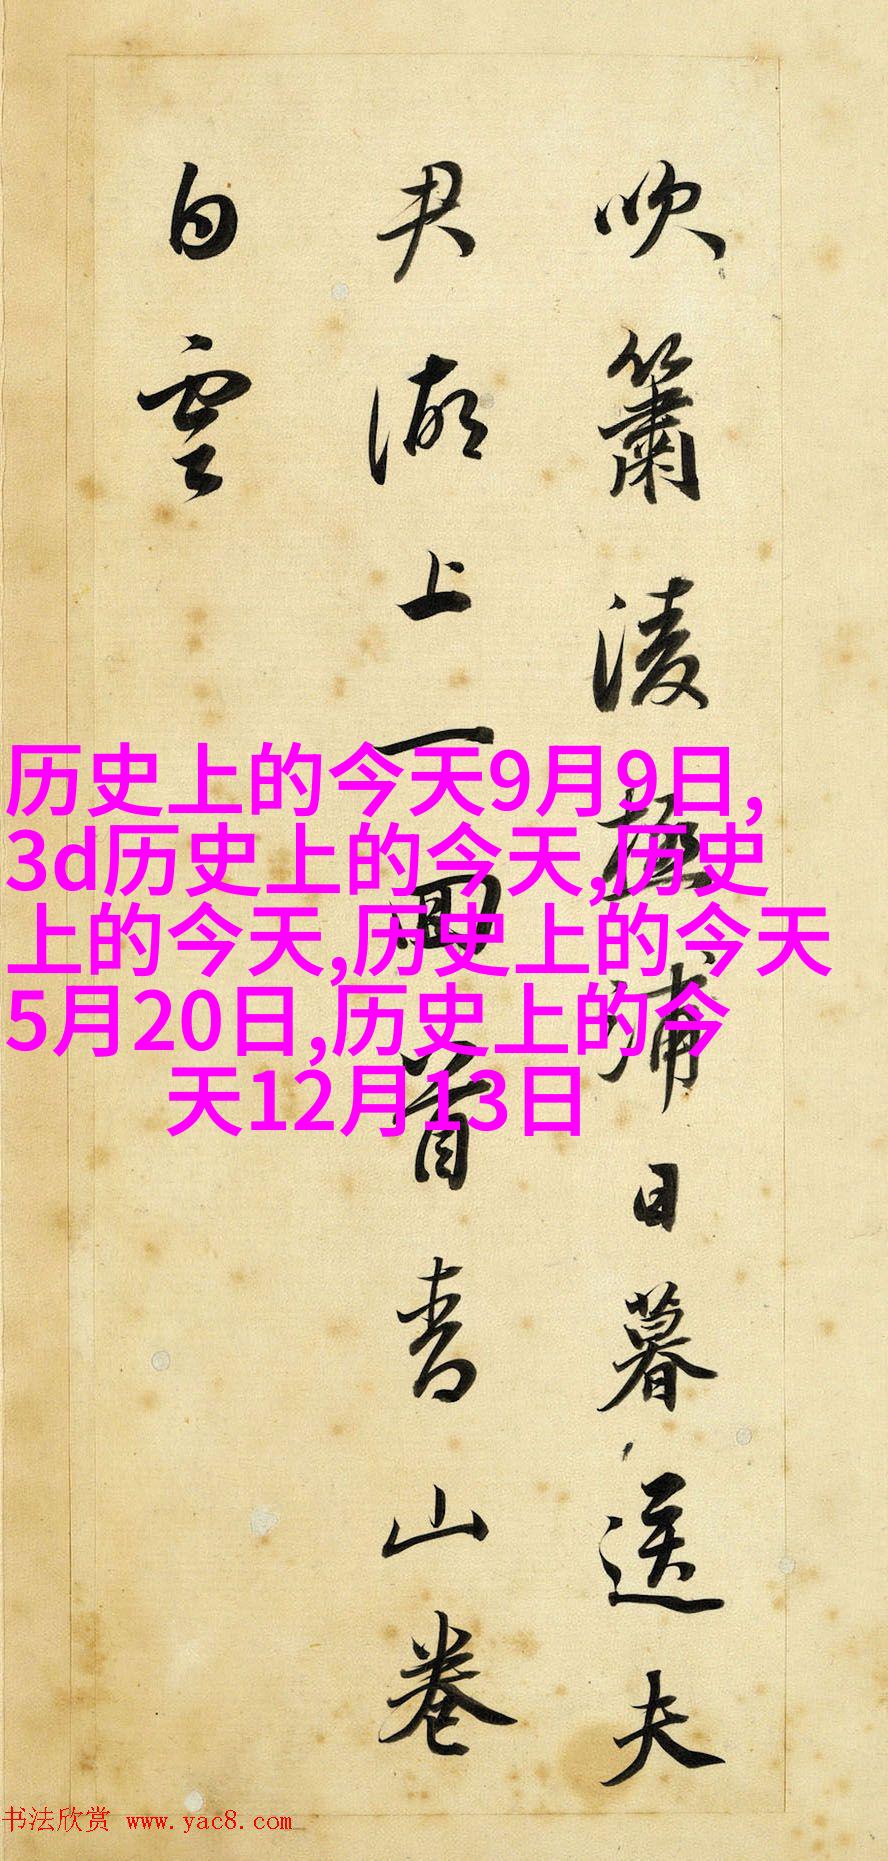 吹簫凌極浦日暮送夫
君湖上一回首青山卷
白雲
历史上的今天9月9日,
3d历史上的今天,历史
上的今天,历史上的今天
5月20日,历史上的今
天12月13日
书法欣赏 www.yac8.com